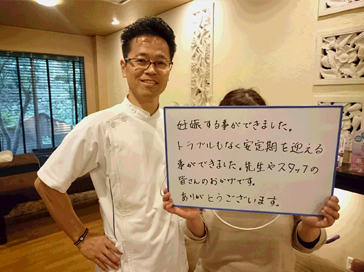 妊娠する事ができました。
トラブルもなく安定期を迎える
事ができました。先生やスタッフの
皆さんのおかげです。
ありがとうございます。